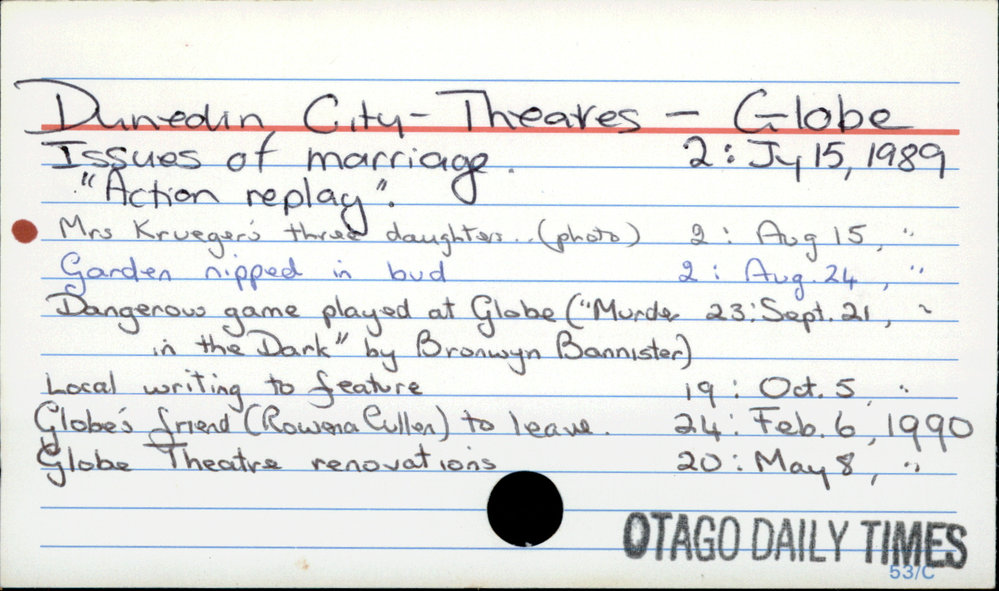 Dunedin City - Theatres - Globe
Issues of marriage. 2: Jy 15, 1989
"Action replay".
Mrs Krueger's three daughters.. (photo) 2: Aug 15, "
Garden nipped in bud 2: Aug. 24, "
Dangerous game played at Globe ("Murder 23: Sept. 21, "
in the Dark" by Bronwyn Bannister)
Local writing to feature 19: Oct. 5, "
Globe's friend (Rowena Cullen) to leave. 24: Feb. 6, 1990
Globe Theatre renovations 20: May 8, "
OTAGO DAILY TIMES
53/C